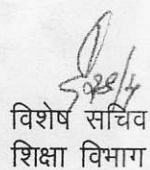 विशेष सचिव
शिक्षा विभाग